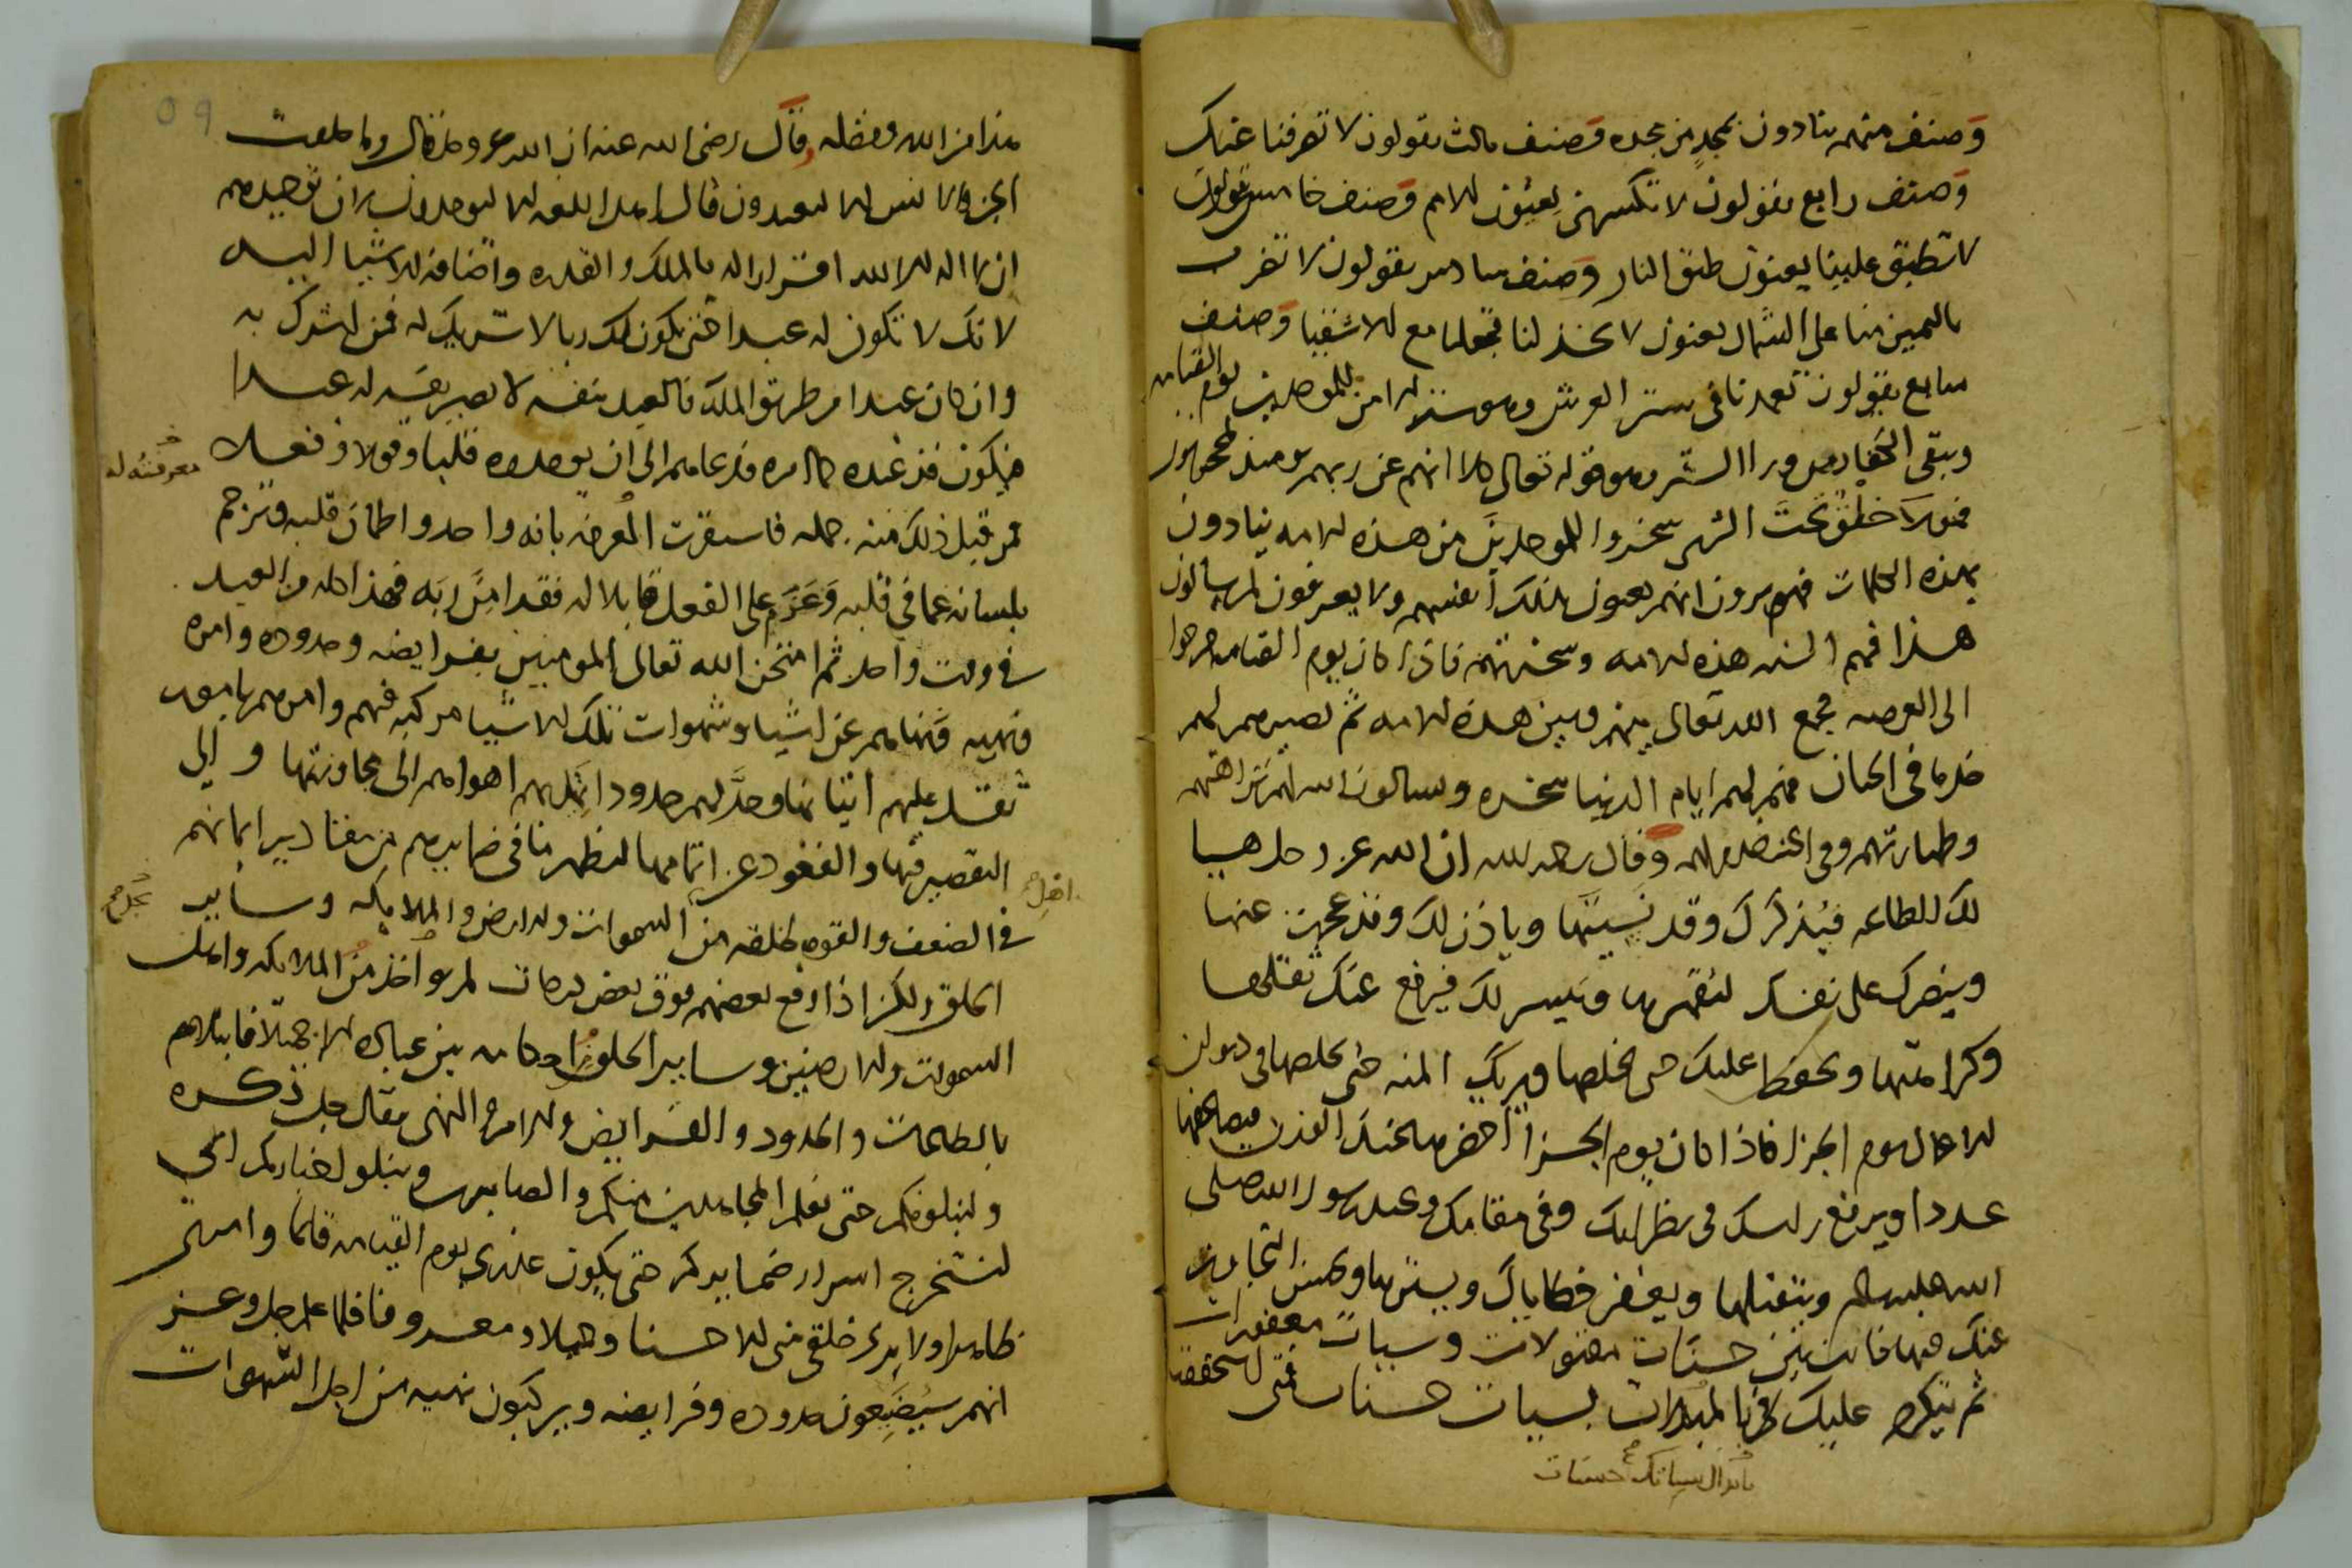 وصنف منهم ينادون نحمده من نجده وصنف ثالث يقولون لا تصرفنا عنك
وصنف رابع يقولون لا تكسهن يعنون الامم وصنف خامس يقولون
لا تطبق علينا يعنون طبق النار وصنف سادس يقولون لا تضرب
باليمين منا على الشمال يعنون لا تجعلنا مع الاشقيا وصنف
سابع يقولون تغمدنا في ستر العرش وهو ستر امن للموحدين يوم القيامه
ويبقى الكفار من ورا الستر وهو قوله تعالى كلا انهم عن ربهم يومئذ لمحجوبون
فهولا خلق تحت الثرى سخروا للموحدين من هذه الامه ينادون
بهذه الكلمات فهم يرون انهم يعنون بذلك أنفسهم ولا يعرفون لمن يسالون
هذا فهم السنه هذه الامه وسخرتهم فاذا كان يوم القيامه خرجوا
الى العرصه فجمع الله تعالى بينهم وبين هذه الامه ثم تصيرهم لهم
خدما في الجنان فهم لهم ايام الدنيا سخره ويسالون الله لهم
وطهارتهم وفي الجنه خدم لهم وقال رحمه الله ان الله عز وجل هيا
لك الطاعه فيذكرك وقد نسيتها وياذن لك وقد عجزت عنها
وينصرك على نفسك لتقهرها وييسر لك فيرفع عنك ثقلها
وكراهتها ويحفظ عليك حتى تخلصها ويريك المنه حتى تخلصها في ديوان
الاعمال ليوم الجزا فاذا كان يوم الجزا احضرها
عددا ويرفع راسك في نظر اليك وفي مقامك وعند رسول الله صلى
الله عليه وسلم ويتقبلها ويغفر خطاياك ويسترها ويحسن التجاوز
عنك فيها فانت بين حسنات مقبولات وسيات مغفورات
ثم يتكرم عليك السيات حسنات حتى
بابدال سياتك حسنات
هذا من الله وفضله وقال رضي الله عنه ان الله عز وجل قال وما خلقت
الجن والانس الا ليعبدون قال اهل اللغه الا ليوحدون لان توحيدهم
ان لا اله الا الله اقرار له بالملك والقدره واضافه الاشيا اليه
لانك لا تكون له عبدا حتى يكون لك ربا لا شريك له فمن اشرك به
وان كان عبدا من طريق الملك فالعبد بنفسه لا يصير نفسه له عبدا
فيكون قد عبده كما امره فدعاهم الى ان يوحدوه قلبا وقولا وفعلا
معرفته له
فمن قبل ذلك منه جمله فاستقرت المعرفه بانه واحد واطمان قلبه وترجم
بلسانه عما في قلبه وعزم على الفعل قابلا له فقد امن ربه فهذا كله من العبد
في وقت واحد ثم امتحن الله تعالى المومنين بفرايضه وحدوده وامره
ونهيه فنهاهم عن اشيا وشهوات تلك الاشيا مركبه فيهم وامرهم بامور
تثقل عليهم اتيانها وحد لهم حدودا تميل بهم اهواهم الى مجاوزتها والى
التقصير فيها والقعود عن اتمامها ليظهر ما في ضمايرهم من مقادير ايمانهم
في الضعف والقوه لخلقه من السموات والارض والملايكه وساير
الخلق ولكن اذا رفع بعضهم فوق بعض درجات لم يواخذ من الملايكه واهل
السموات والارضين وساير الخلق احكامه بين عباده الا جميلا فابتلاهم
بالطاعات والحدود والفرايض والامر والنهي فقال جل ذكره
ولنبلونكم حتى نعلم المجاهدين منكم والصابرين ونبلو اخباركم اي
لنستخرج اسرار ضمايركم حتى يكون عندي يوم القيامه قايما وامركم
ظاهرا ولا يرى خلقي مني الا حسنا وجميلا ومعروفا فلما علم جل وعز
انهم سيضيعون حدوده وفرايضه ويركبون نهيه من اجل الشهوات